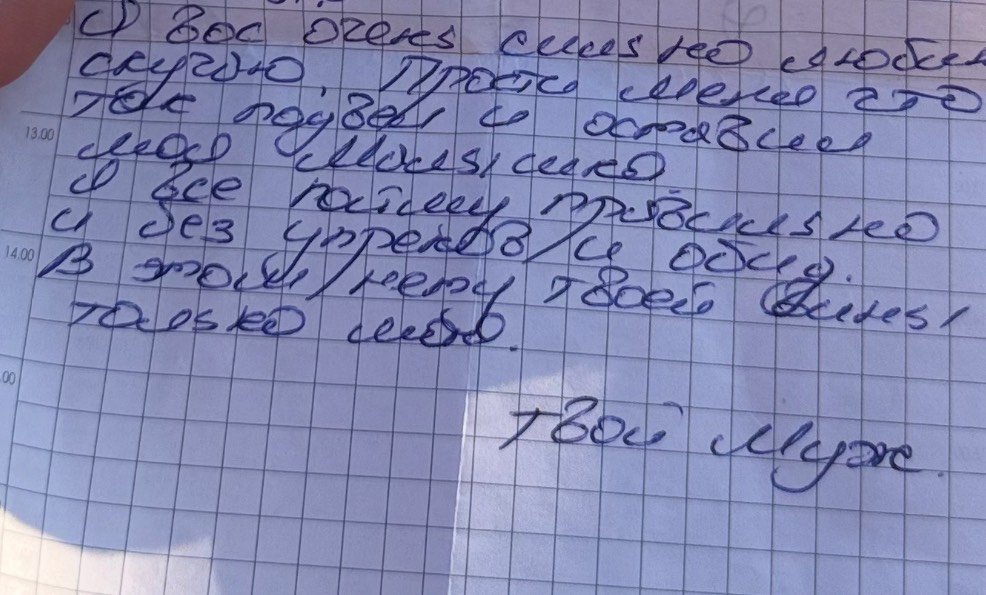 Я Вас очень сильно люблю
скучаю Прости меня что
так подвёл и оставил
моя Малышка
Я все пойму правильно
и без упреков и обид.
В этом нету твоей Вины
только моя.
Твой Муж.
13.00
14.00
.00